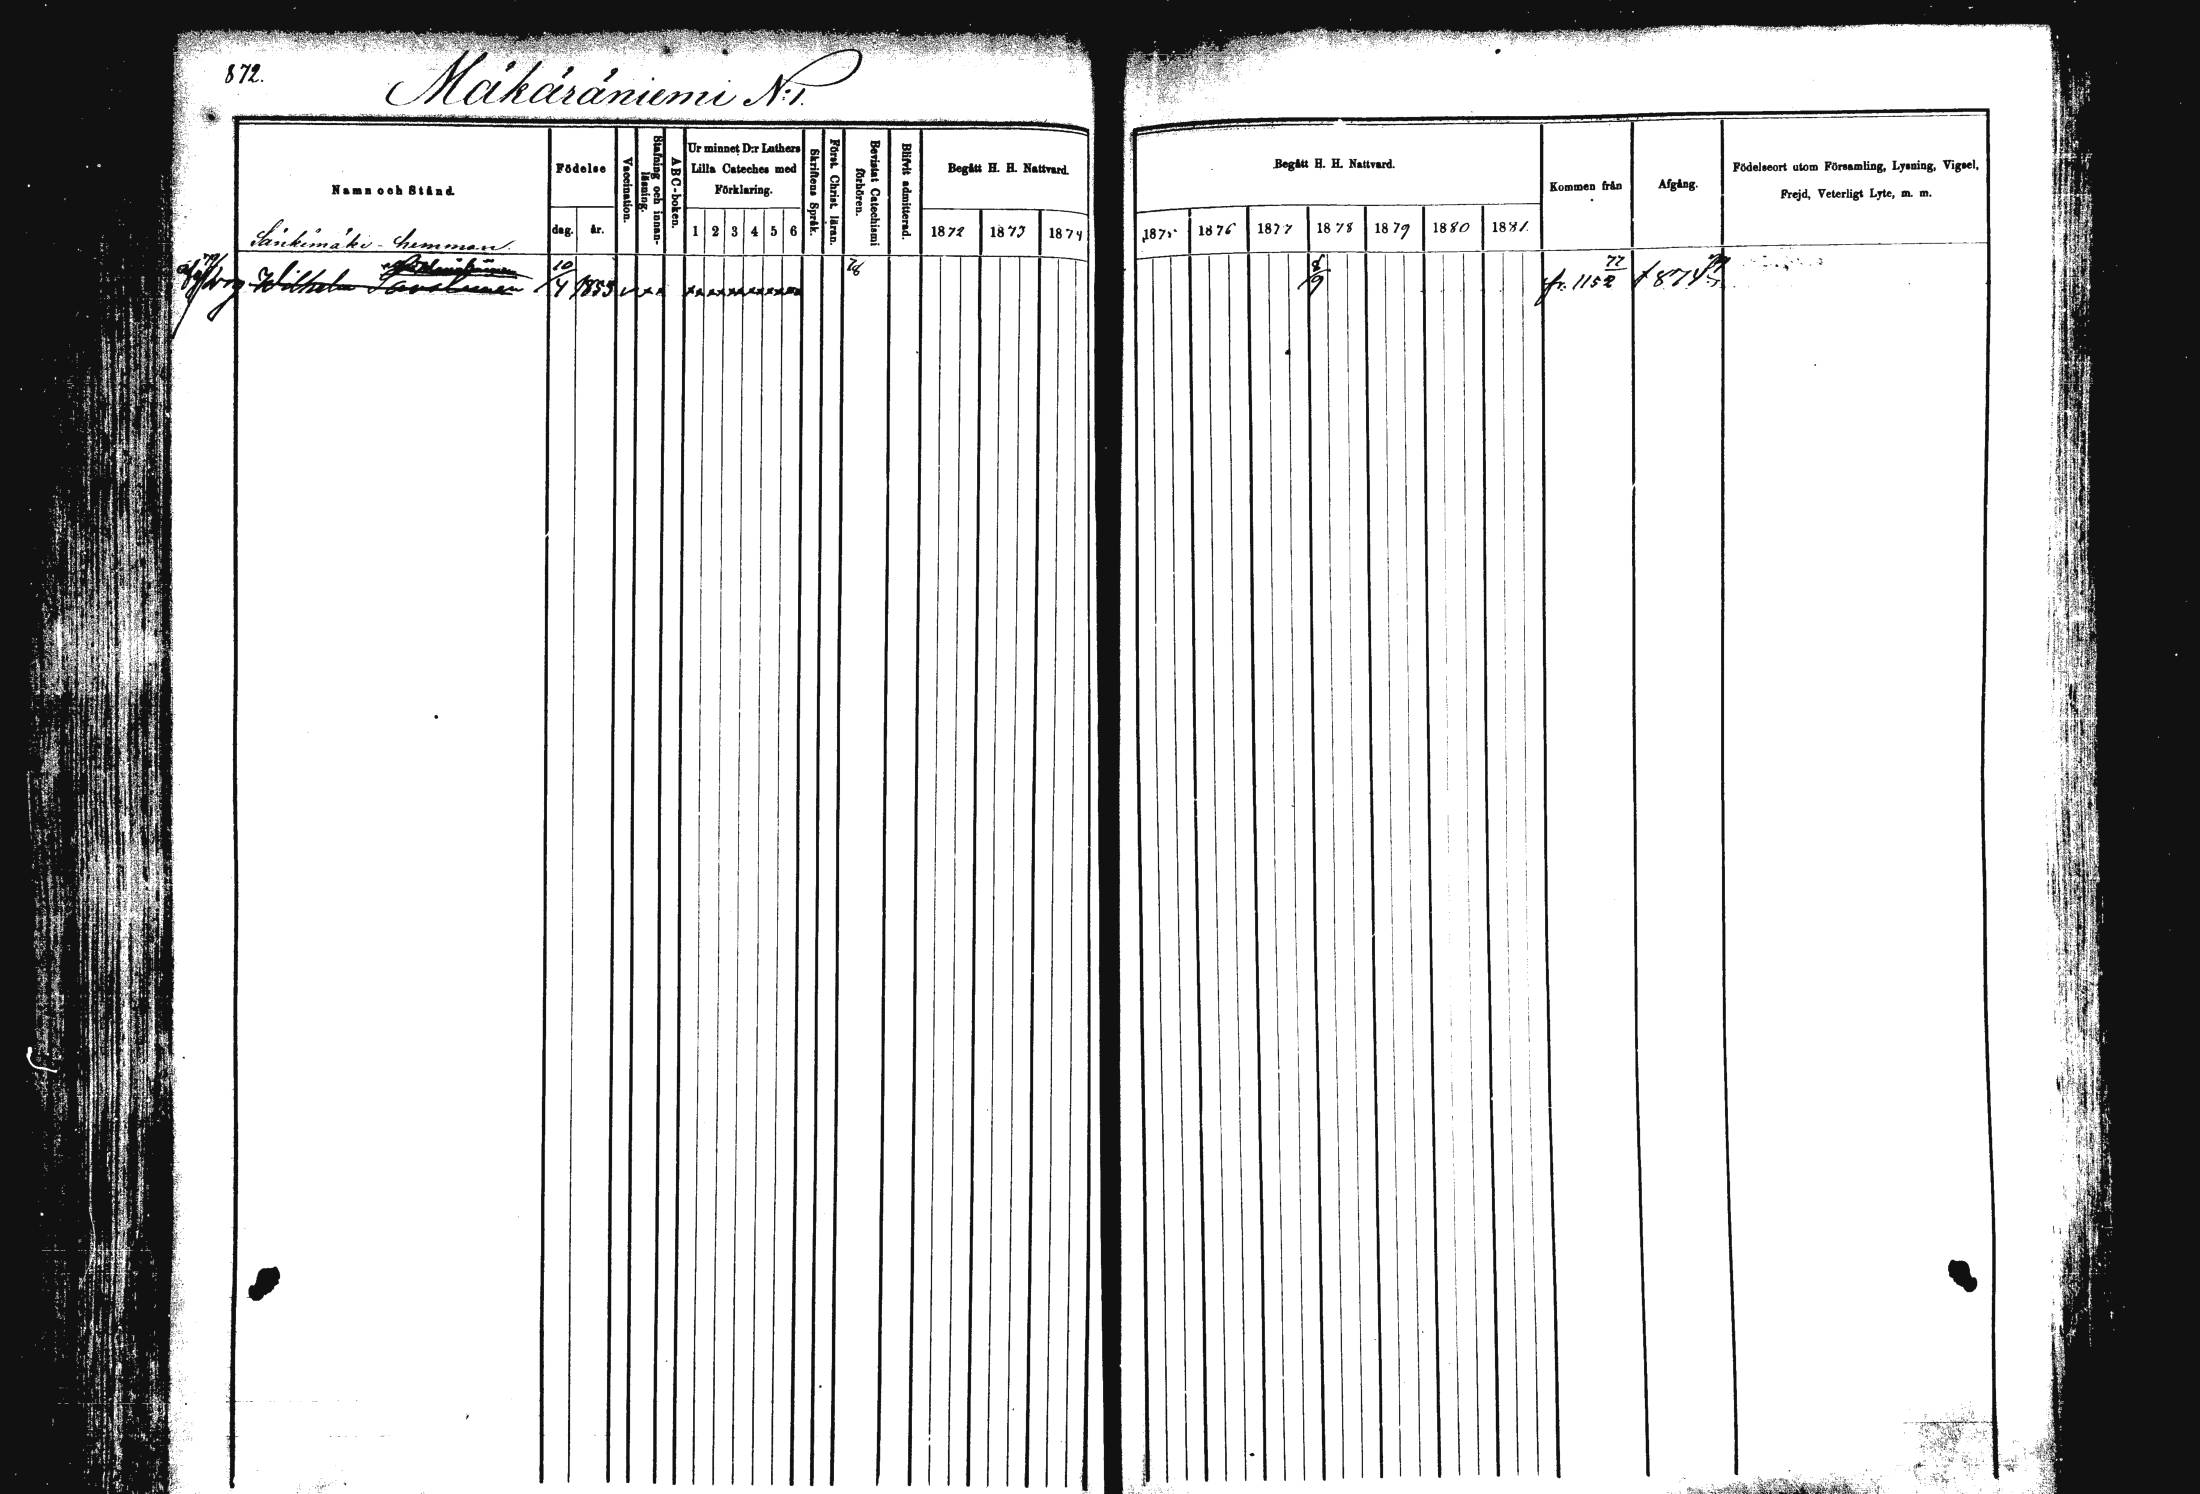 872.
Mäkäräniemi N:1.
Namn och Stånd.
Födelse
dag. år.
Vaccination.
Stafning och innan-läsning.
ABC-boken.
Ur minnet D:r Luthers
Lilla Cateches med
Förklaring.
1 2 3 4 5 6
Skriftens Språk.
Först. Christ. läran.
Bevistat Catechismi förhören.
Blifvit admitterad.
Begått H. H. Nattvard.
1872 1873 1874
Begått H. H. Nattvard.
1875 1876 1877 1878 1879 1880 1881
Kommen från
Afgång.
Födelseort utom Församling, Lysning, Vigsel,
Frejd, Veterligt Lyte, m. m.
Sänkimäki - hemman.
Wilhelm Savolainen 10/4 1855 fr. 1152 77